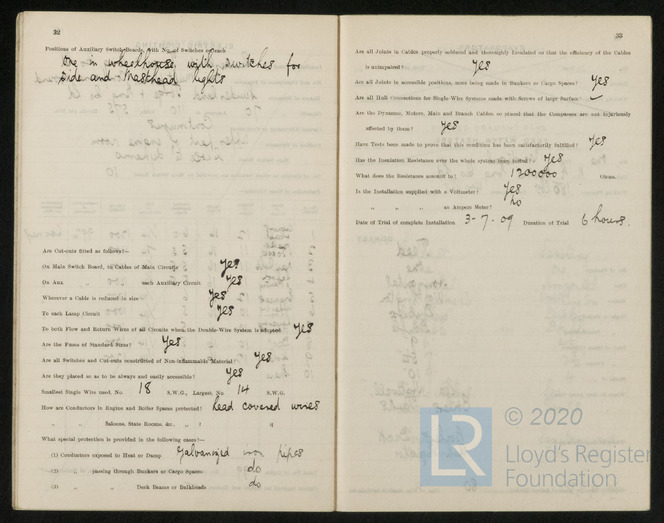 32
Positions of Auxiliary Switch Boards, with No. of Switches on each
One in wheelhouse, with switches for
side and Masthead lights
Are Cut-outs fitted as follows?—
On Main Switch Board, to Cables of Main Circuits yes
On Aux. " " each Auxiliary Circuit yes
Wherever a Cable is reduced in size yes
To each Lamp Circuit yes
To both Flow and Return Wires of all Circuits when the Double-Wire System is adopted yes
Are the Fuses of Standard Sizes? yes
Are all Switches and Cut-outs constructed of Non-inflammable Material? yes
Are they placed so as to be always and easily accessible? yes
Smallest Single Wire used, No. 18 S.W.G., Largest, No. 14 S.W.G.
How are Conductors in Engine and Boiler Spaces protected? Lead covered wires
" " Saloons, State Rooms, &c., " ? "
What special protection is provided in the following cases?—
(1) Conductors exposed to Heat or Damp Galvanized iron pipes
(2) " passing through Bunkers or Cargo Spaces do
(3) " " Deck Beams or Bulkheads do
33
Are all Joints in Cables properly soldered and thoroughly insulated so that the efficiency of the Cables
is unimpaired? yes
Are all Joints in accessible positions, none being made in Bunkers or Cargo Spaces? yes
Are all Hull Connections for Single-Wire Systems made with Screws of large Surface? ✓
Are the Dynamos, Motors, Main and Branch Cables so placed that the Compasses are not injuriously
affected by them? yes
Have Tests been made to prove that this condition has been satisfactorily fulfilled? yes
Has the Insulation Resistance over the whole system been tested? yes
What does the Resistance amount to? 1200000 Ohms.
Is the Installation supplied with a Voltmeter? yes
" " " an Ampere Meter? no
Date of Trial of complete Installation 3-7-09 Duration of Trial 6 hours.
© 2020
LR
Lloyd's Register
Foundation